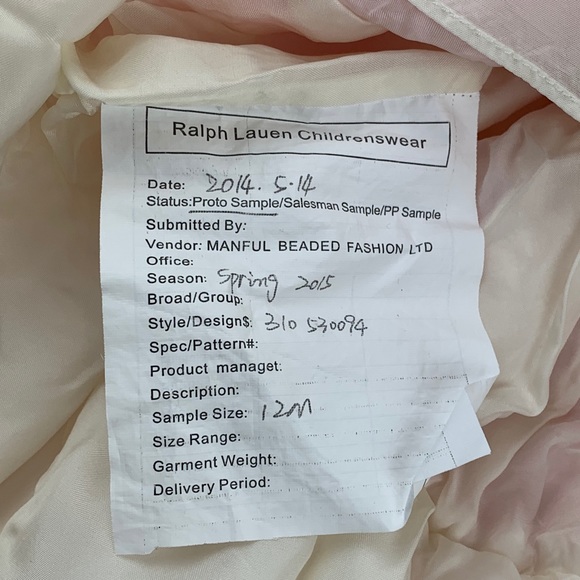 Ralph Lauen Childrenswear
Date: 2014.5.14
Status:Proto Sample/Salesman Sample/PP Sample
Submitted By:
Vendor: MANFUL BEADED FASHION LTD
Office:
Season: Spring 2015
Broad/Group:
Style/Design$: 310 530094
Spec/Pattern#:
Product managet:
Description:
Sample Size: 12M
Size Range:
Garment Weight:
Delivery Period: